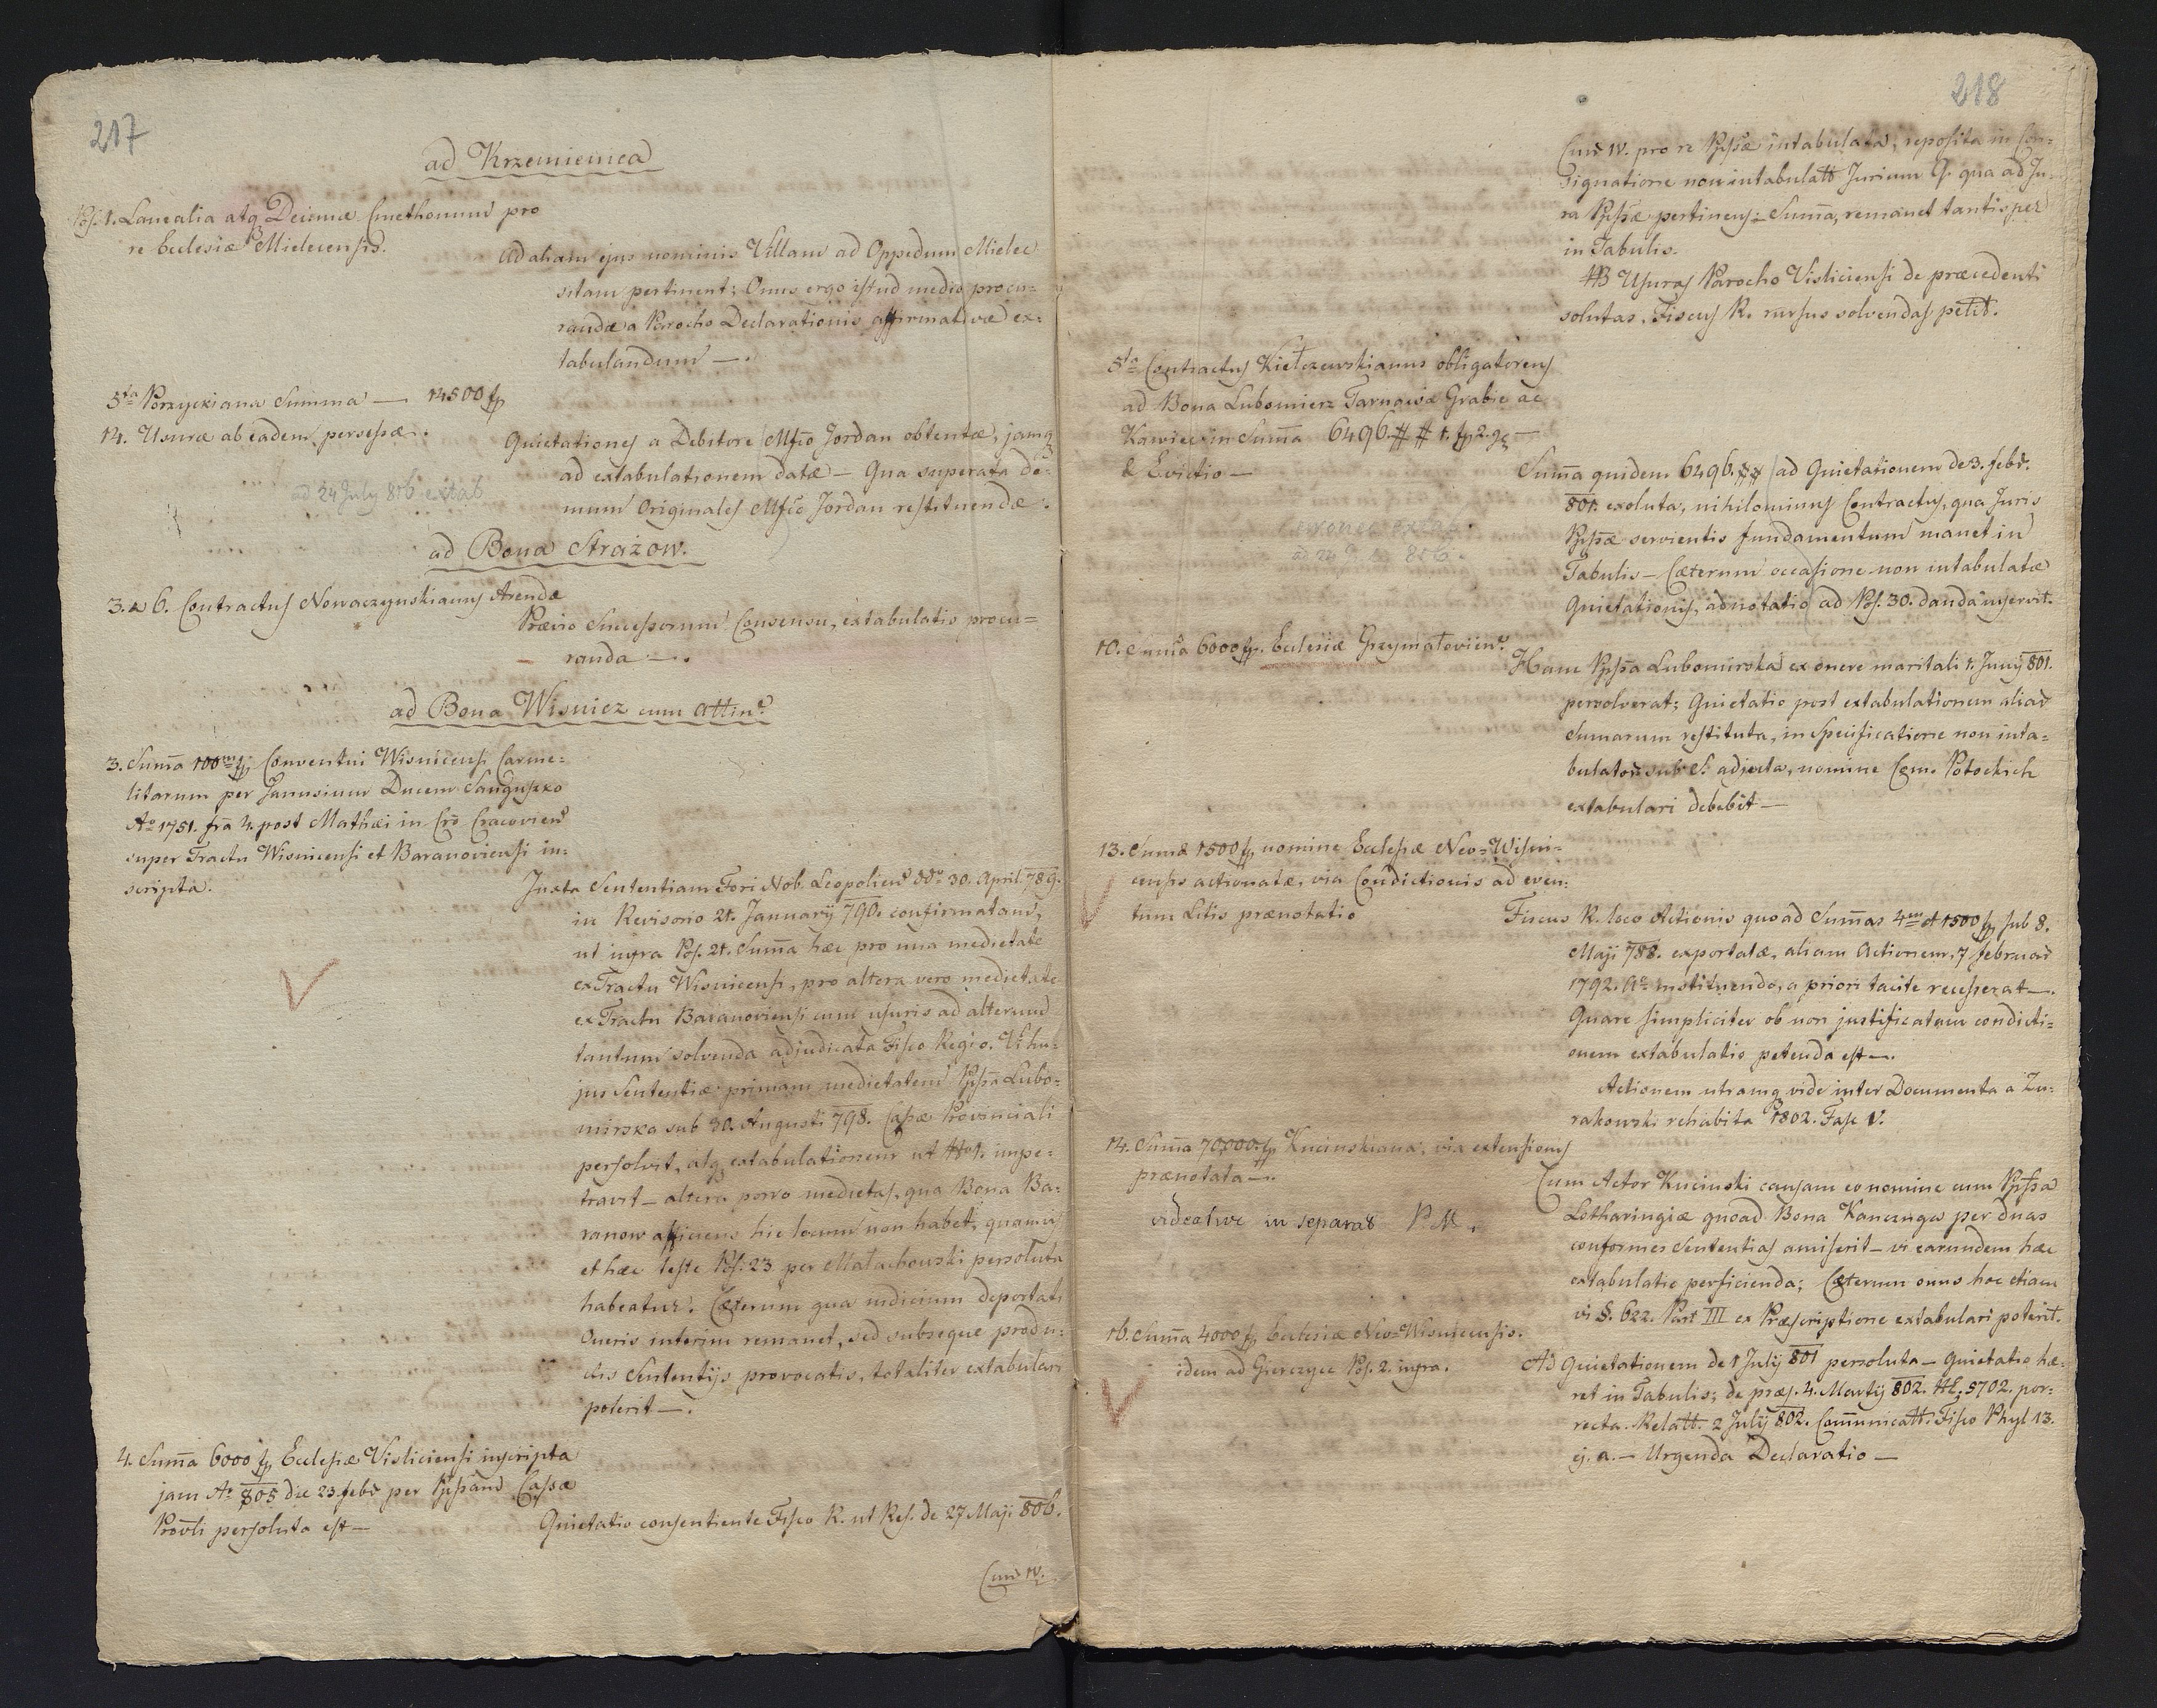 217
ad Krzemienica
Pos. 1. Lanealia atq Decimæ Cmethonum pro
re Ecclesiæ Mielecensis.
Ad aliam ejus nominis Villam ad Oppidum Mielec
sitam pertinent; Onus ergo istud medio procu=
randæ a Parocho Declarationis affirmativæ ex=
tabulandum —.
5ta Porzyckiana Summa — 14500 fp
14. Usuræ ab eadem persessæ.
Quietationes a Debitore Mfco Jordan obtentæ, jamq
ad extabulationem datæ — Qua superata de=
mum Originales Mfco Jordan restituendæ.
ad 24 July 806 extab
ad Bona Strażow.
3. & 6. Contractus Nowaczynskianus Arendæ
Prævio Successorum Consensu, extabulatio procu=
randa —.
ad Bona Wisnicz cum attin.
3. Suma 100m fp Conventui Wisnicensi Carme=
litarum per Janusium Ducem Sanguszko
Ao 1751. fra 4. post Mathæi in Cro Cracovien
super Tractu Wisnicensi et Baranoviensi in=
scripta.
Juxta Sententiam Fori Nob. Leopolien ddo 30. April. 789.
in Revisorio 21. January 790. confirmatam,
ut infra Pos. 21. Suma hæc pro una medietate
ex Tractu Wisnicensi, pro altera vero medietate
ex Tractu Baranoviensi cum usuris ad alterum
tantum solvenda adjudicata Fisco Regio. Vi hu=
jus Sententiæ primam medietatem Ppssa Lubo=
mirska sub 30. Augusti 798. Cassæ Provinciali
persolvit, atq extabulationem ut No 1. impe=
travit — altera porro medietas, qua Bona Ba=
ranow afficiens hic locum non habet, quamvis
et hæc teste Pos. 23 per Małachowski persoluta
habeatur. Cæterum qua indicium deportati
Oneris interim remanet, sed subseque produ=
ctis Sententijs provocatis, totaliter extabulari
poterit —.
4. Suma 6000 fp Ecclesiæ Visliciensi inscripta
jam Ao 805 die 23. febr per Ppssam Cassæ
Provli persoluta est —
Quietatio consentiente Fisco R. ut Res. de 27 Maji 806.
Cum IV.
218
Cum IV. pro re Ppssæ intabulata, reposita in Con=
signatione non intabulatt Jurium G. qua ad Ju=
ra Ppssæ pertinens — Suma, remanet tantisper
in Tabulis.
NB Usuras Parocho Visliciensi de præcedenti
solutas, Fiscus R. rursus solvendas petit.
5ta Contractus Kiełczewskianus obligatorius
ad Bona Lubomierz Tarnawa Grabie ac
Kawiec in Suma 6496. ## 1. fp 2. gr —
& Evictio —
Suma quidem 6496. ## ad Quietationem de 3. febr.
801. exoluta, nihilominus Contractus, qua Juris
Ppssæ servientis fundamentum manet in
Tabulis — Cæterum occasione non intabulatæ
Quietationis, adnotatio ad Pos. 30. danda inservit.
extab.
ad 24 806.
10. Suma 6000 fp. Ecclesiæ Grzymałovien.
Hanc Ppssa Lubomirska ex onere maritali 1. Juny 801.
persolverat; Quietatio post extabulationem aliar
Sumarum restituta, in Specificatione non inta=
bulator sub S. adjecta, nomine Com. Potockich
extabulari debebit —
13. Suma 1500 fp nomine Ecclesiæ Neo=Wisni=
censis actionatæ, via Condictionis ad even=
tum Litis prænotatio
Fiscus R. loco Actionis quoad Sumas 4m et 1500 fp sub 8.
Maji 788. exportatæ, aliam Actionem, 7 februar
1792. Ao instituendo, a priori tacite recesserat —.
Quare simpliciter ob non justificatam condicti=
onem extabulatio petenda est —.
Actionem utramq vide inter Documenta a Żu=
rakowski rehabita 1802. Fasc V.
14. Suma 70,000 fp Kucinskiana, via extensionis
prænotata —.
videatur in separat P.M.
Cum Actor Kucinski causam eo nomine cum Ppssa
Lotharingiæ quoad Bona Kanczuga per duas
conformes Sententias amiserit — vi earundem hæc
extabulatio perficienda; Cæterum onus hoc etiam
vi §. 622. Part III ex Præscriptione extabulari poterit.
16. Suma 4000 fp Ecclesiæ Neo=Wisnicensis.
idem ad Gierczyce Pos. 2. infra.
Ad Quietationem de 1 July 801 persoluta — Quietatio hæ=
ret in Tabulis; de præs. 4. Marty 802. NE. 5702. por=
recta. Relatt. 2 July 802. Comunicatt. Fisco Phyl 13.
ej. a. — Urgenda Declaratio —